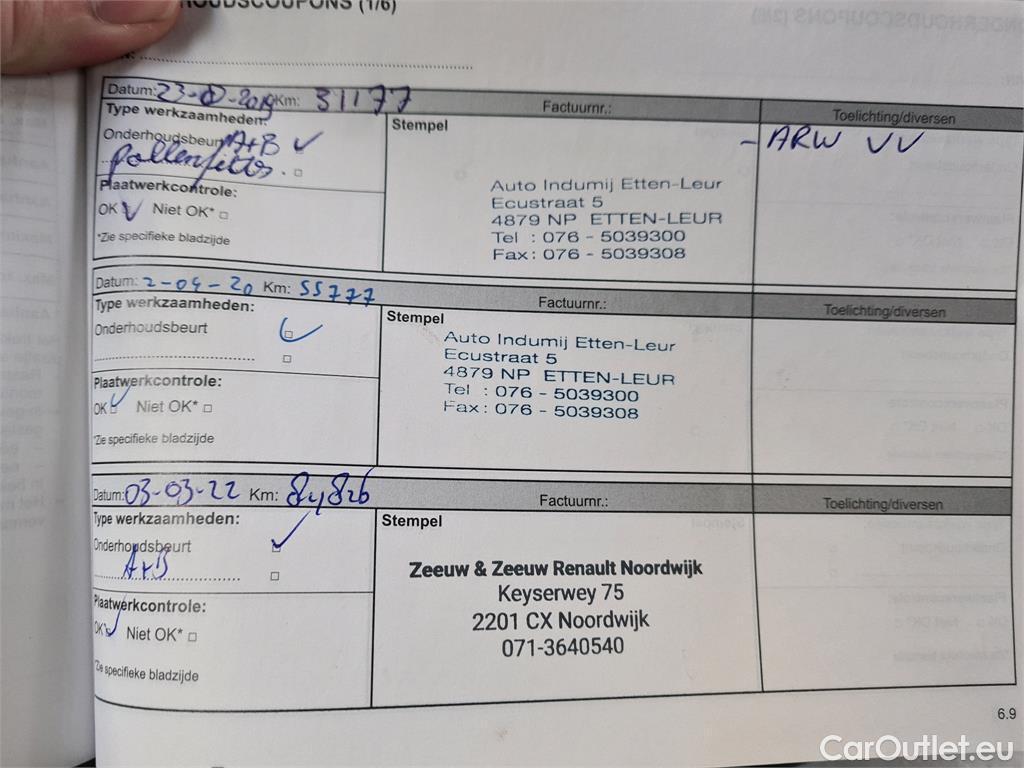 HOUDSCOUPONS (1/6)
Datum: Km: 31177 Factuurnr.: Toelichting/diversen
Type werkzaamheden: Stempel - ARW VV
Onderhoudsbeurt A+B
Plaatwerkcontrole:
OK Niet OK*
*Zie specifieke bladzijde
Auto Indumij Etten-Leur
Ecustraat 5
4879 NP ETTEN-LEUR
Tel : 076 - 5039300
Fax: 076 - 5039308
Datum: 2-04-20 Km: 55777 Factuurnr.: Toelichting/diversen
Type werkzaamheden: Stempel
Onderhoudsbeurt
Plaatwerkcontrole:
OK Niet OK*
*Zie specifieke bladzijde
Auto Indumij Etten-Leur
Ecustraat 5
4879 NP ETTEN-LEUR
Tel : 076 - 5039300
Fax: 076 - 5039308
Datum: 03-03-22 Km: Factuurnr.: Toelichting/diversen
Type werkzaamheden: Stempel
Onderhoudsbeurt
A+B
Plaatwerkcontrole:
OK Niet OK*
*Zie specifieke bladzijde
Zeeuw & Zeeuw Renault Noordwijk
Keyserwey 75
2201 CX Noordwijk
071-3640540
6.9
CarOutlet.eu